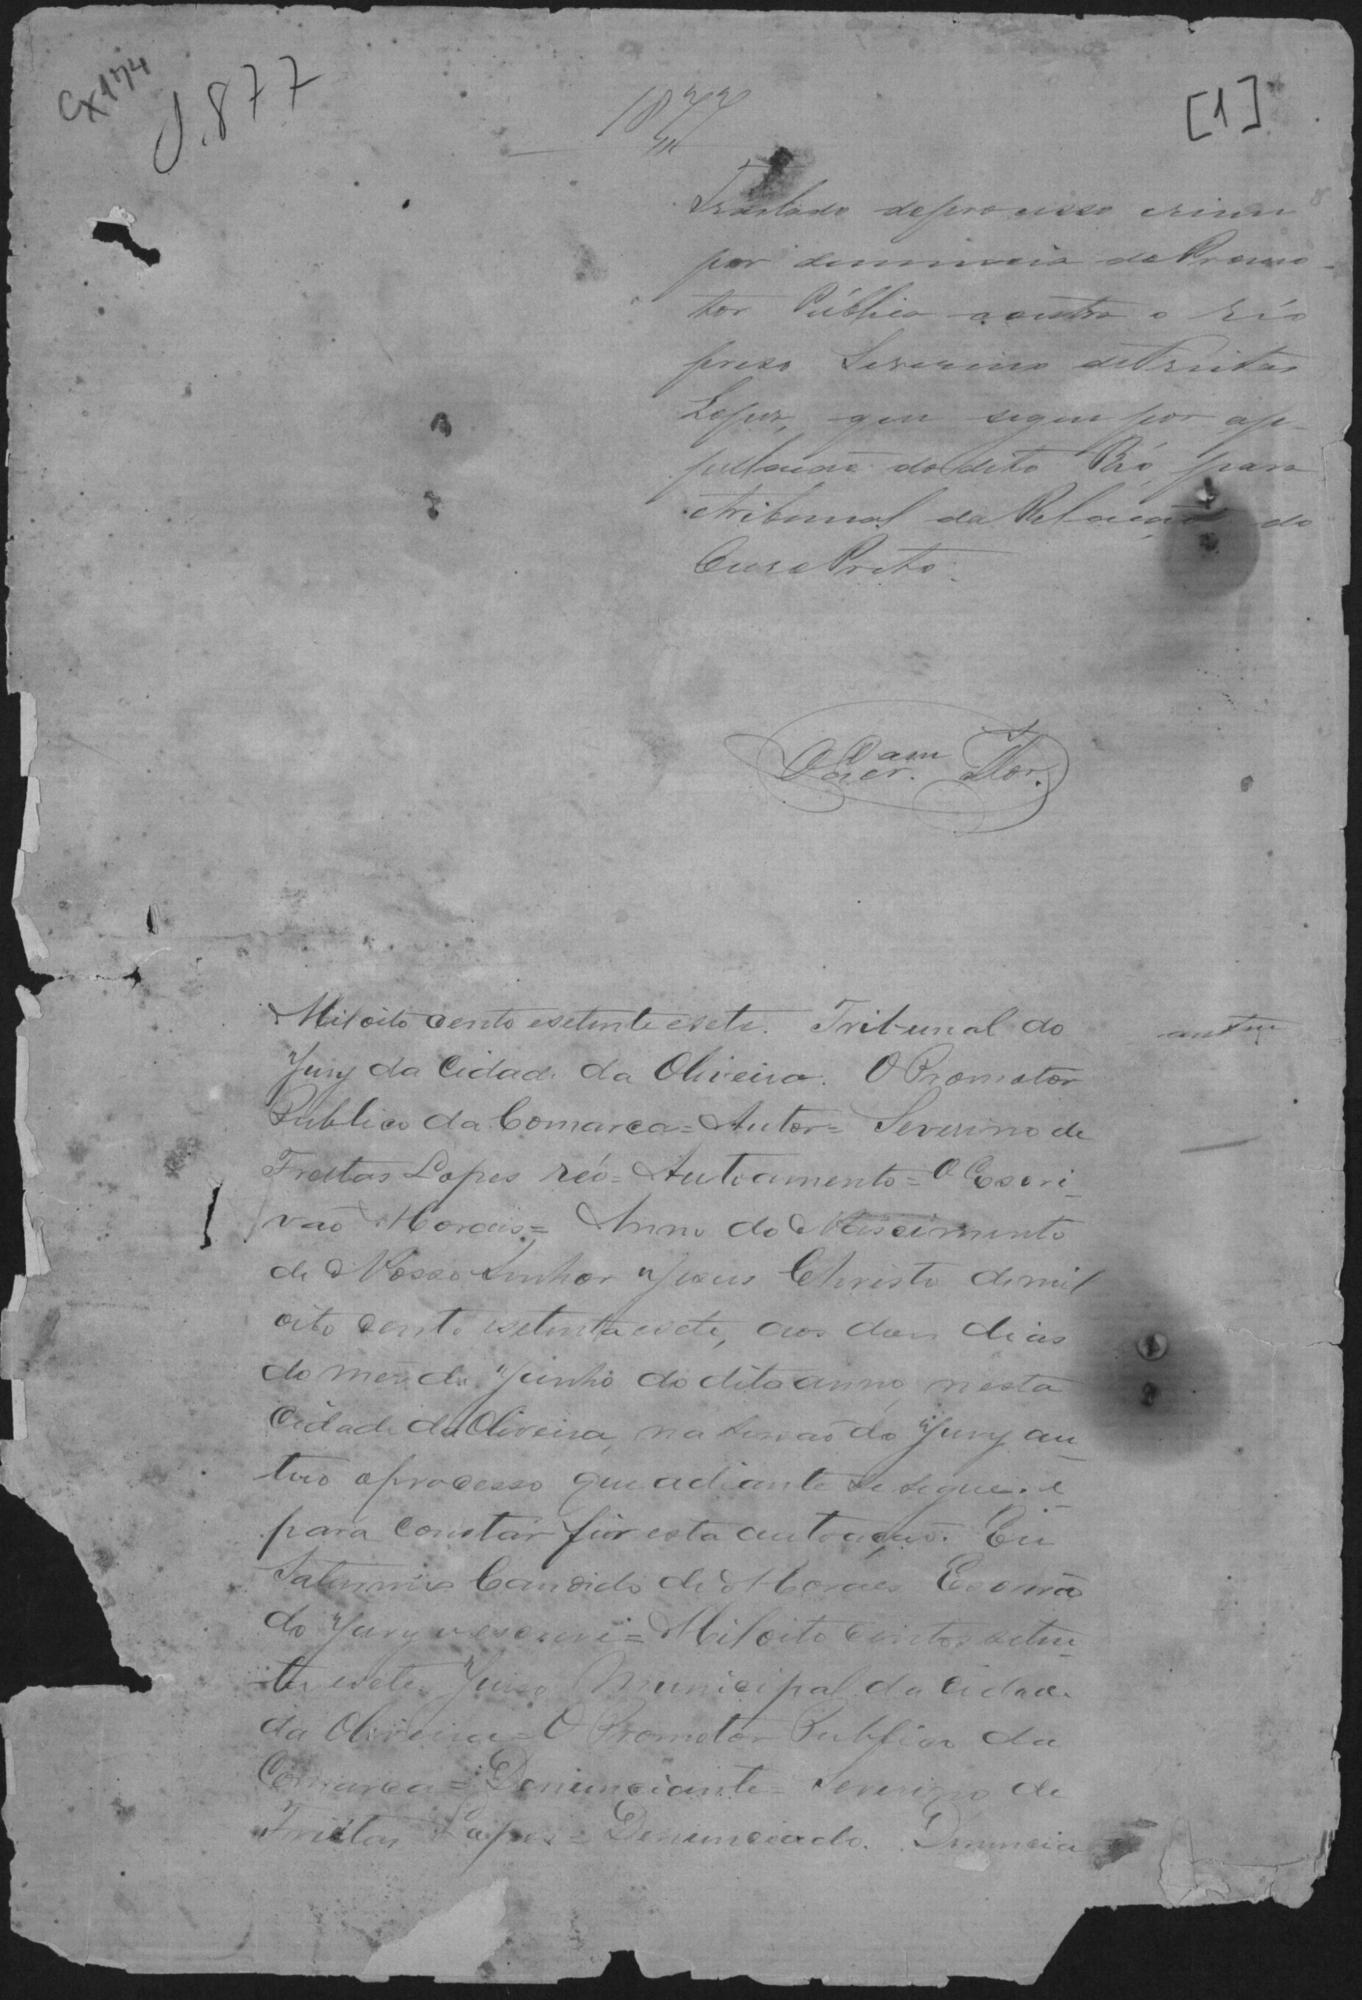 Cx 174
J. 877
1877
[1]
Traslado de processo crime
por denuncia do Promo-
tor Público contra o réo
preso Severino de Freitas
Lopes, que segue por ap-
pellacão do dito Réo, para
o Tribunal da Relacção do
Ouro Preto.
Mil oito cento e setenta e sete. Tribunal do
Jury da Cidade da Oliveira. O Promotor
Publico da Comarca = Autor = Severino de
Freitas Lopes réo = Autoamento = O Escri-
vão Moraes = Anno do Nascimento
de Nosso Senhor Jesus Christo de mil
oito cento e setenta e sete, aos des dias
do mes de Junho do dito anno, nesta
Cidade da Oliveira, na sessão do Jury au-
tuo o processo que adiante se segue. e
para constar fis esta autoação. Eu
Candido de Moraes Escrivão
do Jury o escrevi = Mil oito centos e seten-
ta e sete. Juizo Municipal da Cidade
da Oliveira = O Promotor Publico da
Comarca = Denunciante = Severino de
Freitas Lopes = Denunciado. Denuncia